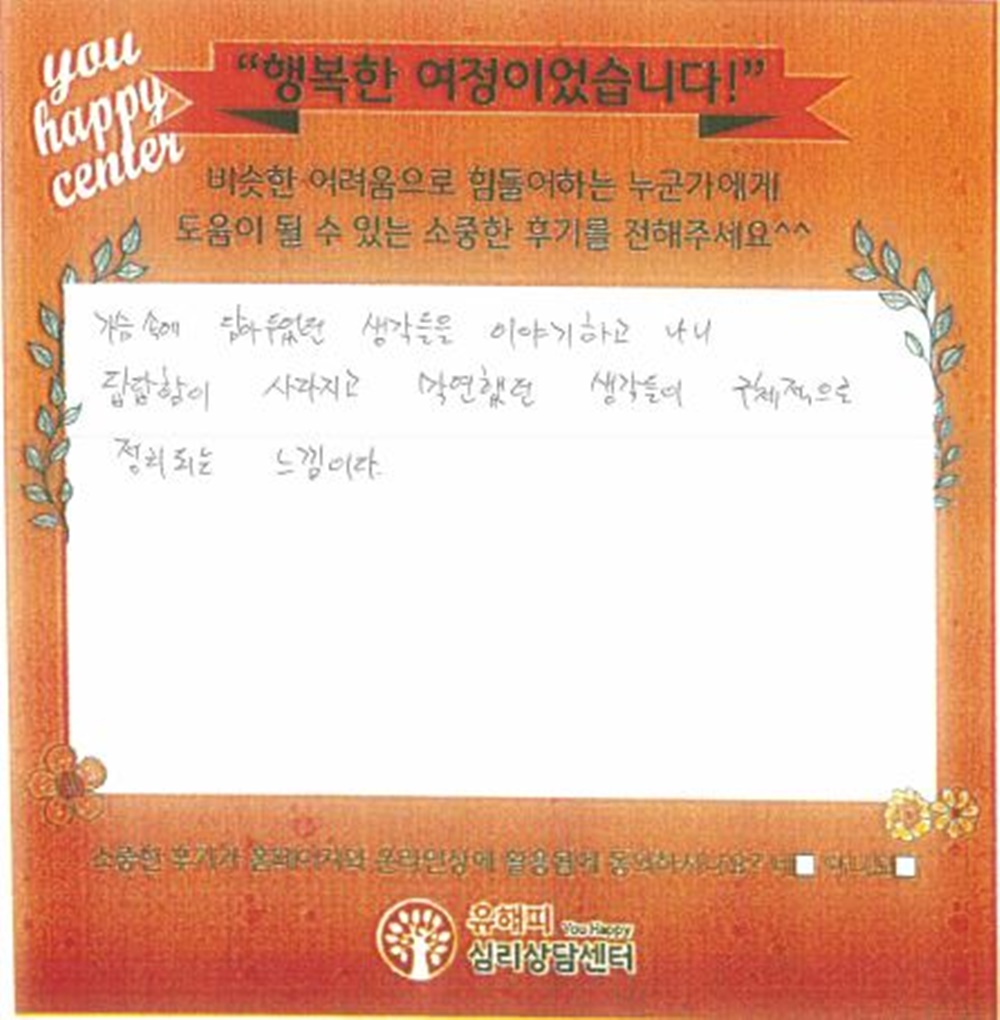 you
happy
center
“행복한 여정이었습니다!”
비슷한 어려움으로 힘들어하는 누군가에게
도움이 될 수 있는 소중한 후기를 전해주세요^^
가슴 속에 담아 두었던 생각들을 이야기하고 나니
답답함이 사라지고 막연했던 생각들이 구체적으로
정리되는 느낌이다.
소중한 후기가 홈페이지와 온라인상에 활용됨에 동의하시나요? 네 아니오
유해피 You Happy
심리상담센터